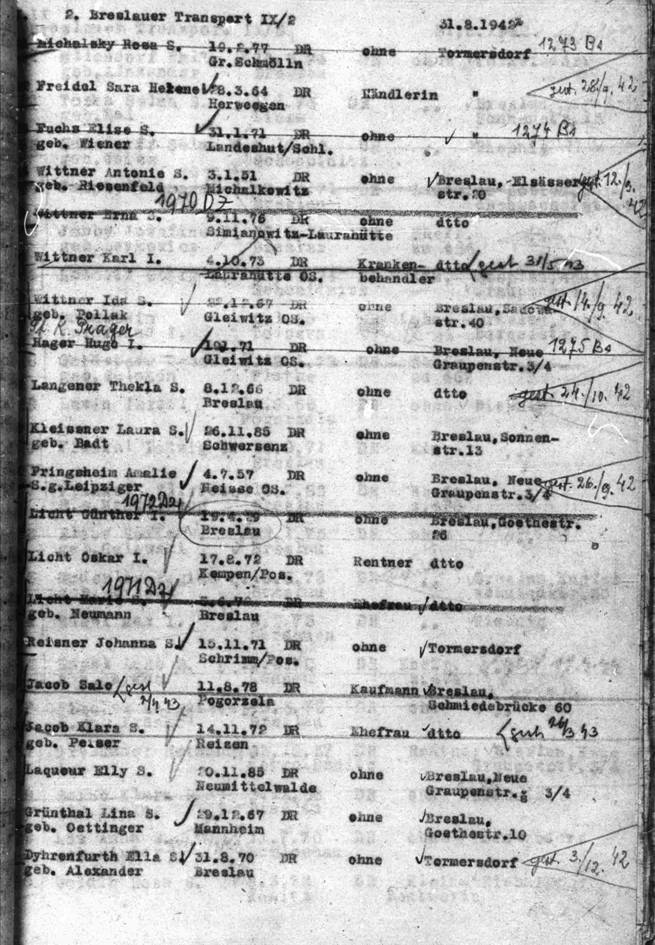 2. Breslauer Transport IX/2 31.8.1942
Michalsky Rosa S. 19.2.77 DR ohne Tormersdorf 1273 Ba
Gr.Schmölln
Freidel Sara Helene 28.3.64 DR Händlerin " gest. 28/9. 42
Herwegen
Fuchs Elise S. 31.1.71 DR ohne " 1274 Ba
geb. Wiener Landeshut/Schl.
Wittner Antonie S. 3.1.51 DR ohne Breslau,-Elsässer- gest. 12./9. 42
geb. Riesenfeld Michalkowitz str.20
1970 DZ
Wittner Erna S. 9.11.76 DR ohne dtto
Simianowitz-Laurahütte
Wittner Karl I. 4.10.73 DR Kranken- dtto gest 31/5 43
Laurahütte OS. behandler
Wittner Ida S. 12.67 DR ohne Breslau,Sadowa- gest. 14./9. 42
geb. Pollak Gleiwitz OS. str.40
Hager Hugo I. .71 DR ohne Breslau, Neue 1275 Ba
Gleiwitz OS. Graupenstr.3/4
Langener Thekla S. 8.12.66 DR ohne dtto gest. 24./10. 42
Breslau
Kleissner Laura S. 26.11.85 DR ohne Breslau,Sonnen-
geb. Badt Schwersenz str.13
Pringsheim Amalie 4.7.57 DR ohne Breslau, Neue gest. 26./9. 42
S.g.Leipziger Neisse OS. Graupenstr.3/4
1972 DZ
Licht Günther I. 19.4.29 DR ohne Breslau,Goethestr.
Breslau 26
Licht Oskar I. 17.8.72 DR Rentner dtto
Kempen/Pos.
1971 DZ
Licht Marie S. DR Ehefrau dtto
geb. Neumann Breslau
Reisner Johanna S. 15.11.71 DR ohne Tormersdorf
Schrimm/Pos.
Jacob Salo gest 11.8.78 DR Kaufmann Breslau,
2/4 43 Pogorzela Schmiedebrücke 60
Jacob Klara S. 14.11.72 DR Ehefrau dtto gest 26/3 43
geb. Peiser Reizen
Laqueur Elly S. 20.11.85 DR ohne Breslau,Neue
Neumittelwalde Graupenstr. 3/4
Grünthal Lina S. 29.12.67 DR ohne Breslau,
geb. Oettinger Mannheim Goethestr.10
Dyhrenfurth Ella S. 31.8.70 DR ohne Tormersdorf gest. 3./12. 42
geb. Alexander Breslau